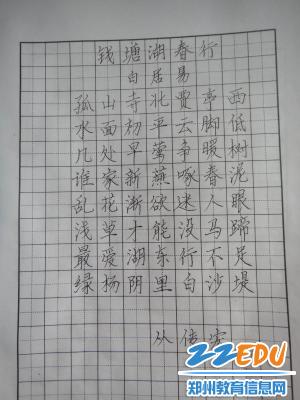 钱塘湖春行
白居易
孤山寺北贾亭西
水面初平云脚低
几处早莺争暖树
谁家新燕啄春泥
乱花渐欲迷人眼
浅草才能没马蹄
最爱湖东行不足
绿杨阴里白沙堤
从
22EDU
郑州教育信息网